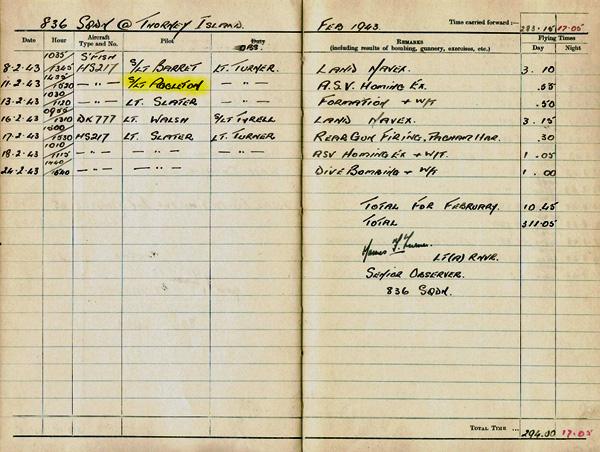 836 SQDN @ THORNEY ISLAND. FEB 1943. Time carried forward:— 283.15 17.05
Date Hour Aircraft Type and No. Pilot Duty OBS. REMARKS (including results of bombing, gunnery, exercises, etc.) Flying Times Day Night
S'FISH
8-2-43 1035/1345 HS217 S/LT BARRET LT. TURNER. LAND NAVEX. 3.10
11-2-43 1435/1530 — " — S/LT APPLETON — " — A.S.V. HOMING EX. .55
13-2-43 1030/1120 — " — LT. SLATER — " — FORMATION + W/T .50
16-2-43 0955/1310 DK777 LT. WALSH S/LT TYRELL LAND NAVEX. 3.15
17-2-43 1500/1530 HS217 LT. SLATER LT. TURNER REAR GUN FIRING, PAGHAM HAR. .30
18-2-43 1010/1115 — " — — " — — " — ASV HOMING EX + W/T. 1.05
24-2-43 1440/1540 — " — — " — — " — DIVE BOMBING + W/T 1.00
TOTAL FOR FEBRUARY. 10.45
TOTAL 311.05
LT(A) RNVR.
SENIOR OBSERVER.
836 SQDN.
TOTAL TIME ... 294.00 17.05